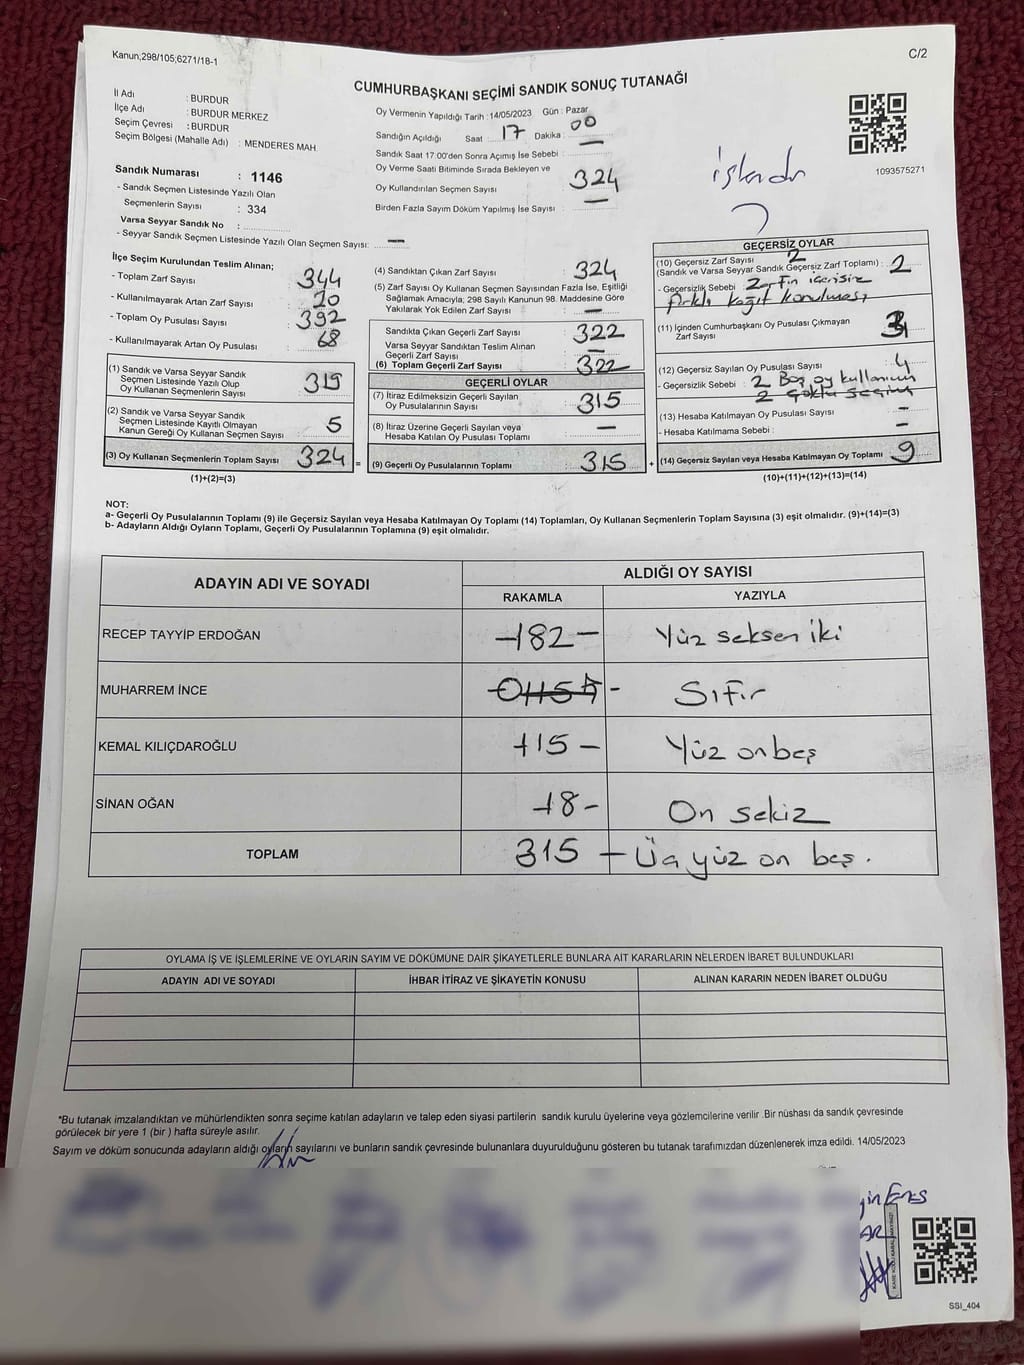 Kanun;298/105;6271/18-1
C/2
CUMHURBAŞKANI SEÇİMİ SANDIK SONUÇ TUTANAĞI
İl Adı : BURDUR
İlçe Adı : BURDUR MERKEZ
Seçim Çevresi : BURDUR
Seçim Bölgesi (Mahalle Adı) : MENDERES MAH.
Sandık Numarası : 1146
- Sandık Seçmen Listesinde Yazılı Olan
Seçmenlerin Sayısı : 334
Varsa Seyyar Sandık No :
- Seyyar Sandık Seçmen Listesinde Yazılı Olan Seçmen Sayısı: —
Oy Vermenin Yapıldığı Tarih : 14/05/2023 Gün : Pazar
Sandığın Açıldığı Saat : 17 Dakika : 00
Sandık Saat 17.00'den Sonra Açımış İse Sebebi : —
Oy Verme Saati Bitiminde Sırada Bekleyen ve
Oy Kullandırılan Seçmen Sayısı : 324
Birden Fazla Sayım Döküm Yapılmış İse Sayısı : —
1093575271
İlçe Seçim Kurulundan Teslim Alınan;
- Toplam Zarf Sayısı : 344
- Kullanılmayarak Artan Zarf Sayısı : 20
- Toplam Oy Pusulası Sayısı : 392
- Kullanılmayarak Artan Oy Pusulası : 68
(1) Sandık ve Varsa Seyyar Sandık
Seçmen Listesinde Yazılı Olup
Oy Kullanan Seçmenlerin Sayısı : 319
(2) Sandık ve Varsa Seyyar Sandık
Seçmen Listesinde Kayıtlı Olmayan
Kanun Gereği Oy Kullanan Seçmen Sayısı : 5
(3) Oy Kullanan Seçmenlerin Toplam Sayısı : 324 =
(1)+(2)=(3)
(4) Sandıktan Çıkan Zarf Sayısı : 324
(5) Zarf Sayısı Oy Kullanan Seçmen Sayısından Fazla İse, Eşitliği
Sağlamak Amacıyla; 298 Sayılı Kanunun 98. Maddesine Göre
Yakılarak Yok Edilen Zarf Sayısı : —
Sandıkta Çıkan Geçerli Zarf Sayısı : 322
Varsa Seyyar Sandıktan Teslim Alınan
Geçerli Zarf Sayısı : —
(6) Toplam Geçerli Zarf Sayısı : 322
GEÇERLİ OYLAR
(7) İtiraz Edilmeksizin Geçerli Sayılan
Oy Pusulalarının Sayısı : 315
(8) İtiraz Üzerine Geçerli Sayılan veya
Hesaba Katılan Oy Pusulası Toplamı : —
(9) Geçerli Oy Pusulalarının Toplamı : 315 +
GEÇERSİZ OYLAR
(10) Geçersiz Zarf Sayısı 2
(Sandık ve Varsa Seyyar Sandık Geçersiz Zarf Toplamı) : 2
- Geçersizlik Sebebi : Zarfın içerisine
farklı kağıt konulması
(11) İçinden Cumhurbaşkanı Oy Pusulası Çıkmayan
Zarf Sayısı : 3
(12) Geçersiz Sayılan Oy Pusulası Sayısı : 4
- Geçersizlik Sebebi : 2 Boş oy kullanımı
2 Çoklu seçim
(13) Hesaba Katılmayan Oy Pusulası Sayısı : —
- Hesaba Katılmama Sebebi : —
(14) Geçersiz Sayılan veya Hesaba Katılmayan Oy Toplamı : 9
(10)+(11)+(12)+(13)=(14)
NOT:
a- Geçerli Oy Pusulalarının Toplamı (9) ile Geçersiz Sayılan veya Hesaba Katılmayan Oy Toplamı (14) Toplamları, Oy Kullanan Seçmenlerin Toplam Sayısına (3) eşit olmalıdır. (9)+(14)=(3)
b- Adayların Aldığı Oyların Toplamı, Geçerli Oy Pusulalarının Toplamına (9) eşit olmalıdır.
ADAYIN ADI VE SOYADI ALDIĞI OY SAYISI
RAKAMLA YAZIYLA
RECEP TAYYİP ERDOĞAN -182- Yüz seksen iki
MUHARREM İNCE Sıfır
KEMAL KILIÇDAROĞLU 115 - Yüz on beş
SİNAN OĞAN 18- On sekiz
TOPLAM 315 - Üç yüz on beş.
OYLAMA İŞ VE İŞLEMLERİNE VE OYLARIN SAYIM VE DÖKÜMÜNE DAİR ŞİKAYETLERLE BUNLARA AİT KARARLARIN NELERDEN İBARET BULUNDUKLARI
ADAYIN ADI VE SOYADI İHBAR İTİRAZ VE ŞİKAYETİN KONUSU ALINAN KARARIN NEDEN İBARET OLDUĞU
*Bu tutanak imzalandıktan ve mühürlendikten sonra seçime katılan adayların ve talep eden siyasi partilerin sandık kurulu üyelerine veya gözlemcilerine verilir .Bir nüshası da sandık çevresinde
görülecek bir yere 1 (bir ) hafta süreyle asılır.
Sayım ve döküm sonucunda adayların aldığı oyların sayılarını ve bunların sandık çevresinde bulunanlara duyurulduğunu gösteren bu tutanak tarafımızdan düzenlenerek imza edildi. 14/05/2023
SSI_404